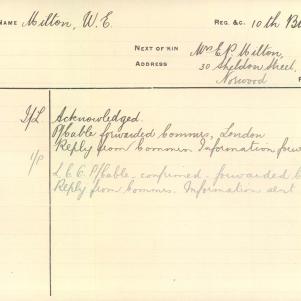 NAME Milton, W. E. REG. &C. 10th B
NEXT OF KIN Mrs E. P. Milton,
ADDRESS 30 Sheldon Street,
Norwood
I/L Acknowledged.
P/Cable forwarded Commrs, London
Reply from Commrs Information forw
L.C.G. P/Cable confirmed forwarded
Reply from Commrs. Information sent